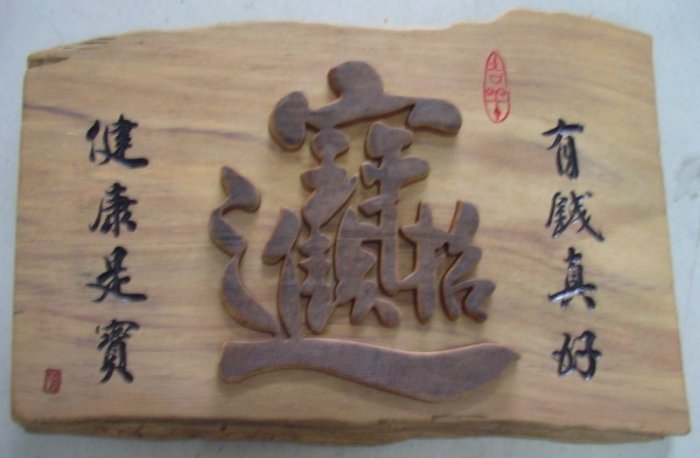 有錢真好
招財進寶
健康是寶